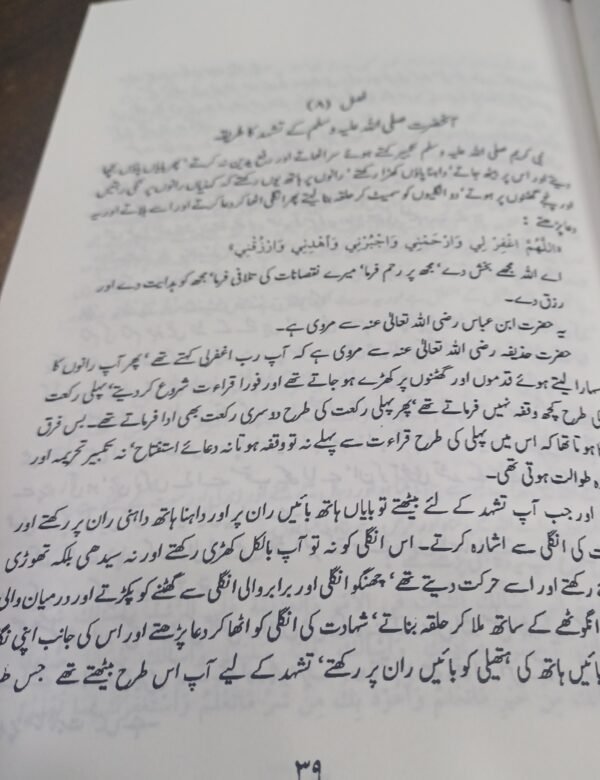 فصل (۸)
آنحضرت صلی اللہ علیہ و سلم کے تشہد کا طریقہ
نبی کریم صلی اللہ علیہ و سلم تکبیر کہتے ہوئے سر اٹھاتے اور رفع یدین نہ کرتے' پھر بایاں پاؤں بچھا
دیتے اور اس پر بیٹھ جاتے' داہنا پاؤں کھڑا رکھتے' رانوں پر ہاتھ یوں رکھتے کہ کہنیاں رانوں پر ٹکی رہتیں
اور پنجے گھٹنوں پر ہوتے' دو انگلیوں کو سمیٹ کر حلقہ بنا لیتے پھر انگلی اٹھا کر دعا کرتے اور اسے ہلاتے اور یہ
دعا پڑھتے :
«اللَّهُمَّ اغْفِرْ لِي وَارْحَمْنِي وَاجْبُرْنِي وَاهْدِنِي وَارْزُقْنِي»
اے اللہ مجھے بخش دے' مجھ پر رحم فرما' میرے نقصانات کی تلافی فرما' مجھ کو ہدایت دے اور
رزق دے۔
یہ حضرت ابن عباس رضی اللہ تعالیٰ عنہ سے مروی ہے۔
حضرت حذیفہ رضی اللہ تعالیٰ عنہ سے مروی ہے کہ آپ رب اغفرلی کہتے تھے' پھر آپ رانوں کا
سہارا لیتے ہوئے قدموں اور گھٹنوں پر کھڑے ہو جاتے تھے اور فورا قراءت شروع کر دیتے' پہلی رکعت
کی طرح کچھ وقفہ نہیں فرماتے تھے' پھر پہلی رکعت کی طرح دوسری رکعت بھی ادا فرماتے تھے۔ بس فرق
ہوتا تھا کہ اس میں پہلی کی طرح قراءت سے پہلے نہ تو وقفہ ہوتا نہ دعائے استفتاح' نہ تکبیر تحریمہ اور
طوالت ہوتی تھی۔
اور جب آپ تشہد کے لئے بیٹھتے تو بایاں ہاتھ بائیں ران پر اور داہنا ہاتھ داہنی ران پر رکھتے اور
کی انگلی سے اشارہ کرتے۔ اس انگلی کو نہ تو آپ بالکل کھڑی رکھتے اور نہ سیدھی بلکہ تھوڑی
رکھتے اور اسے حرکت دیتے تھے' چھنگو انگلی اور برابر والی انگلی سے گھٹنے کو پکڑتے اور درمیان والی
انگوٹھے کے ساتھ ملا کر حلقہ بناتے' شہادت کی انگلی کو اٹھا کر دعا پڑھتے اور اس کی جانب اپنی
بائیں ہاتھ کی ہتھیلی کو بائیں ران پر رکھتے' تشہد کے لیے آپ اس طرح بیٹھتے تھے جس
۳۹